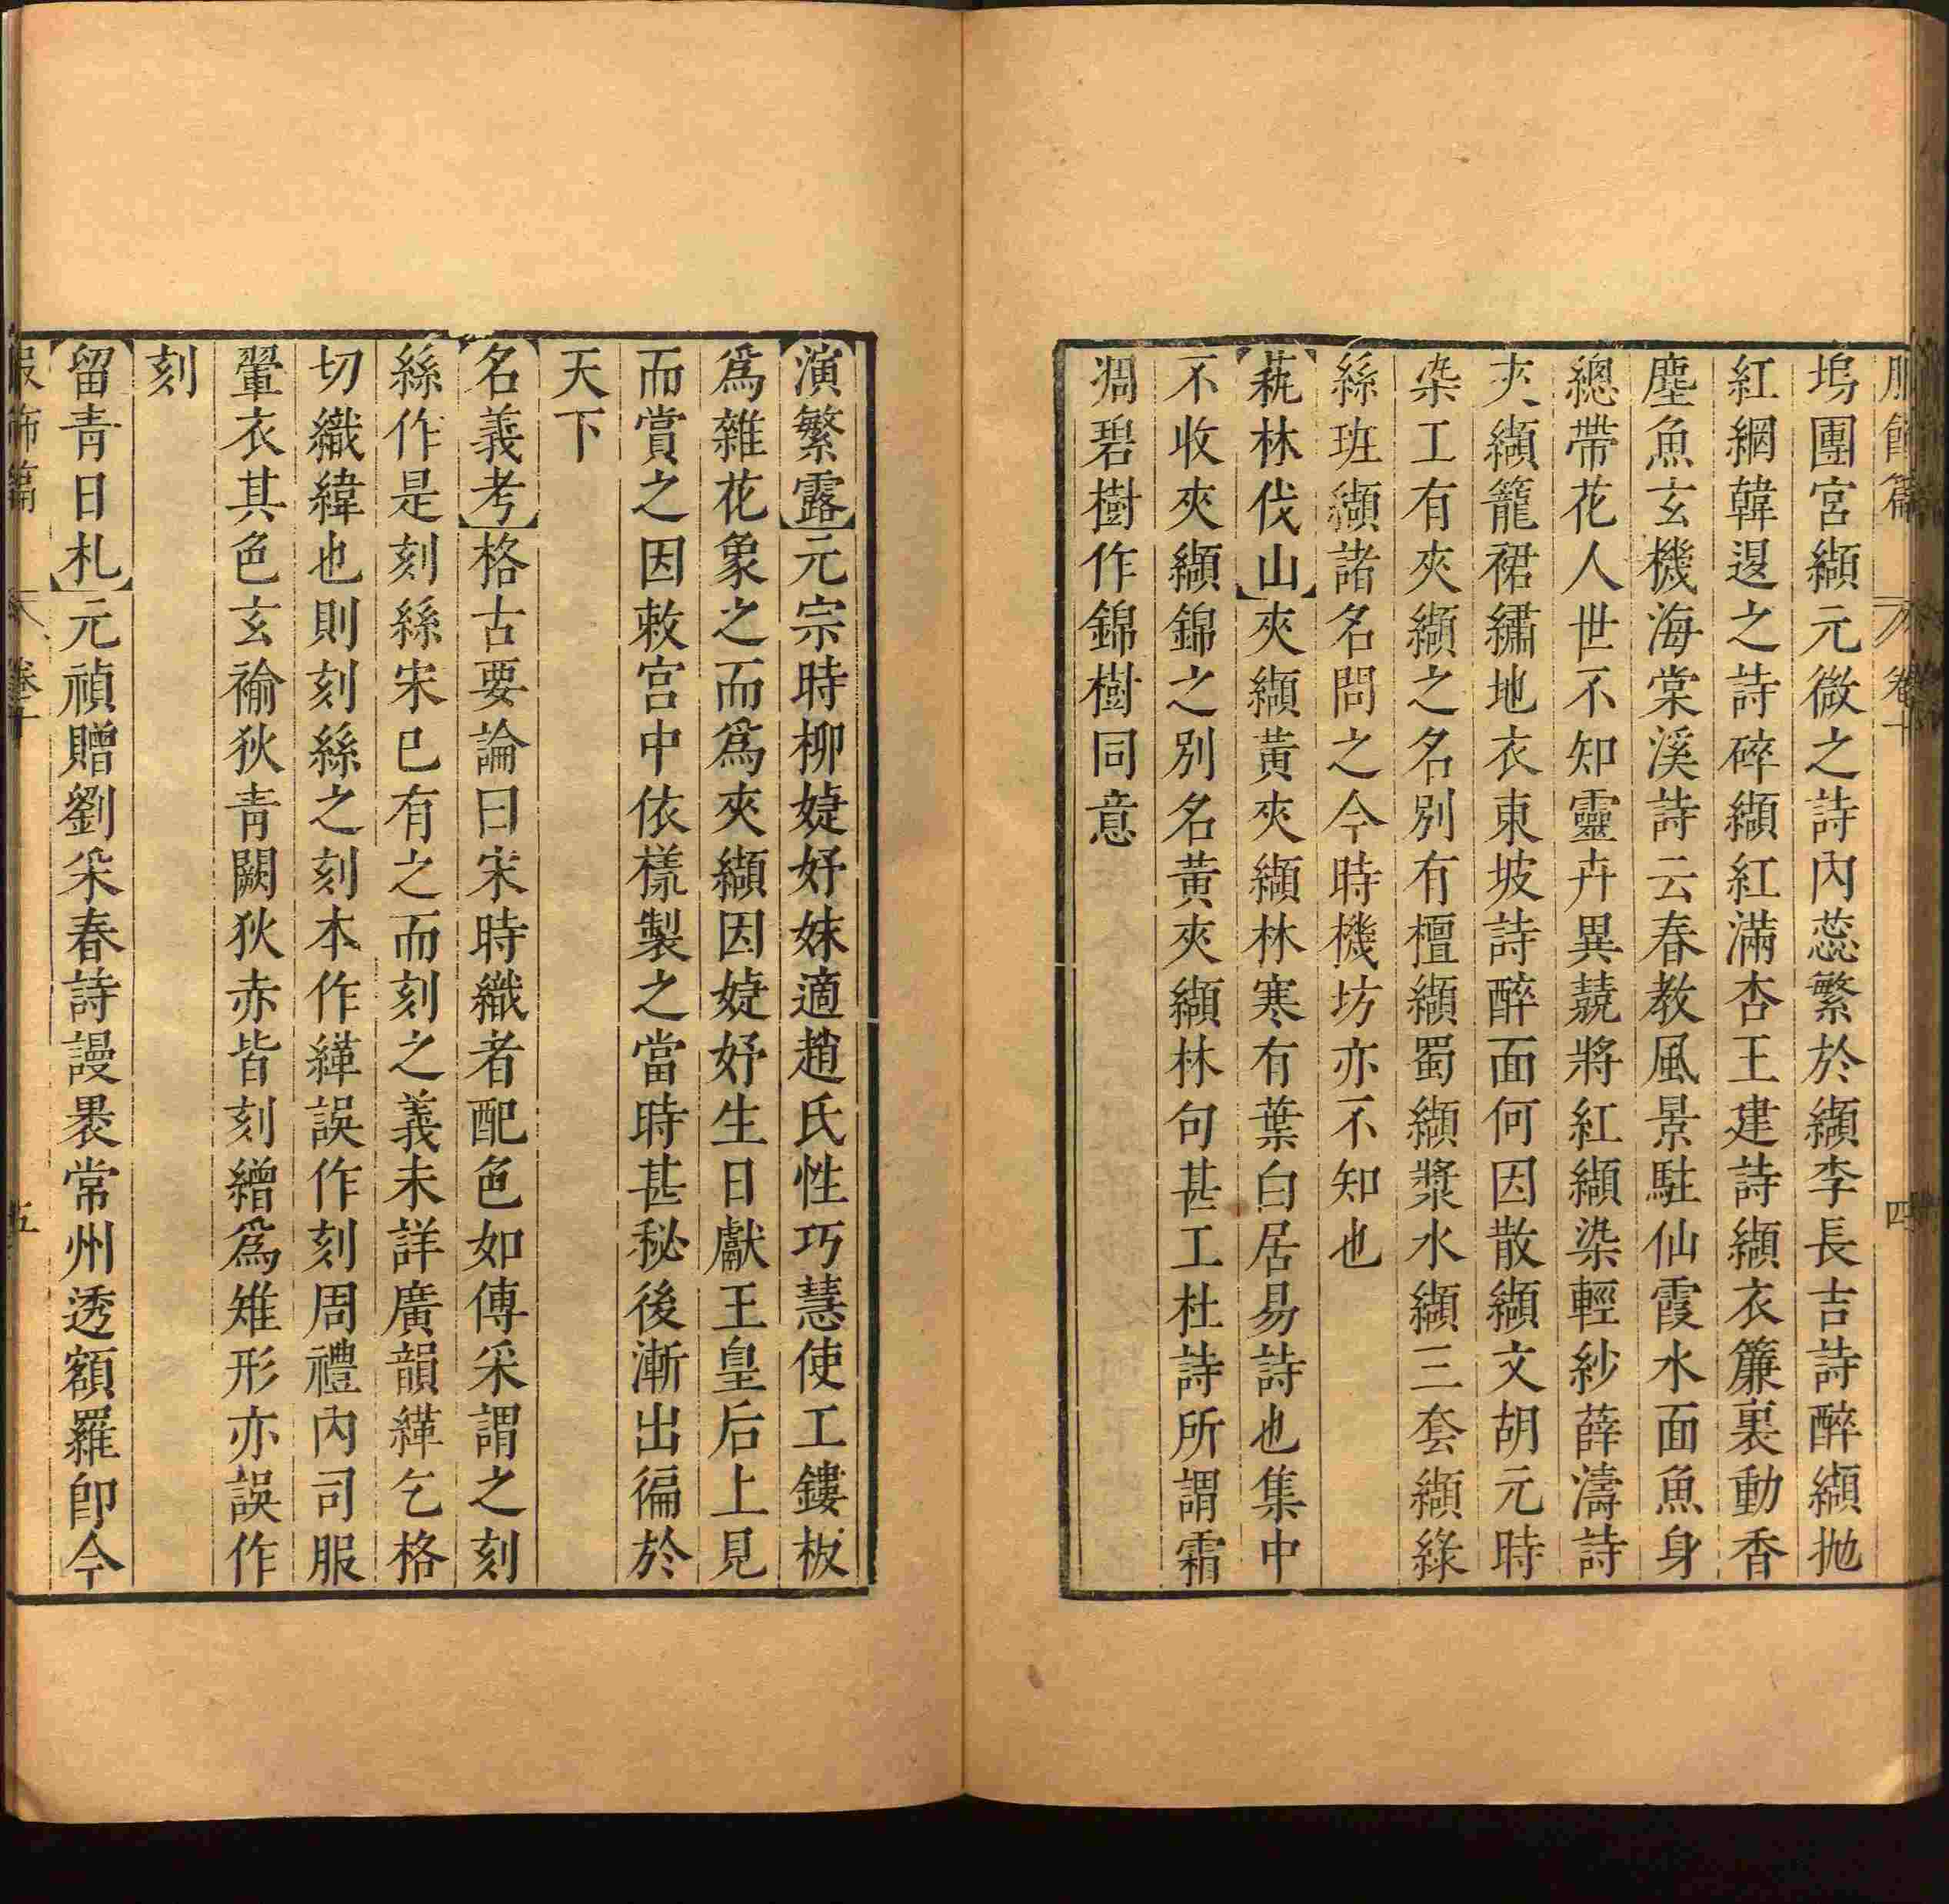 服飾篇 卷十 四
塢團宮纈元微之詩內蕊繁於纈李長吉詩醉纈拋
紅網韓退之詩碎纈紅滿杏王建詩纈衣簾裏動香
塵魚玄機海棠溪詩云春教風景駐仙霞水面魚身
總帶花人世不知靈卉異競將紅纈染輕紗薛濤詩
夾纈籠裙繡地衣東坡詩醉面何因散纈文胡元時
染工有夾纈之名別有檀纈蜀纈漿水纈三套纈綠
絲班纈諸名問之今時機坊亦不知也
【蓺林伐山】夾纈黃夾纈林寒有葉白居易詩也集中
不收夾纈錦之別名黃夾纈林句甚工杜詩所謂霜
凋碧樹作錦樹同意
【演繁露】元宗時柳婕妤妹適趙氏性巧慧使工鏤板
爲雜花象之而爲夾纈因婕妤生日獻王皇后上見
而賞之因敕宮中依樣製之當時甚秘後漸出徧於
天下
【名義考】格古要論曰宋時織者配色如傅采謂之刻
絲作是刻絲宋已有之而刻之義未詳廣韻緙乞格
切織緯也則刻絲之刻本作緙誤作刻周禮內司服
翬衣其色玄褕狄青闕狄赤皆刻繒爲雉形亦誤作
刻
【留青日札】元禎贈劉采春詩謾褁常州透額羅卽今
服飾篇 卷十 五